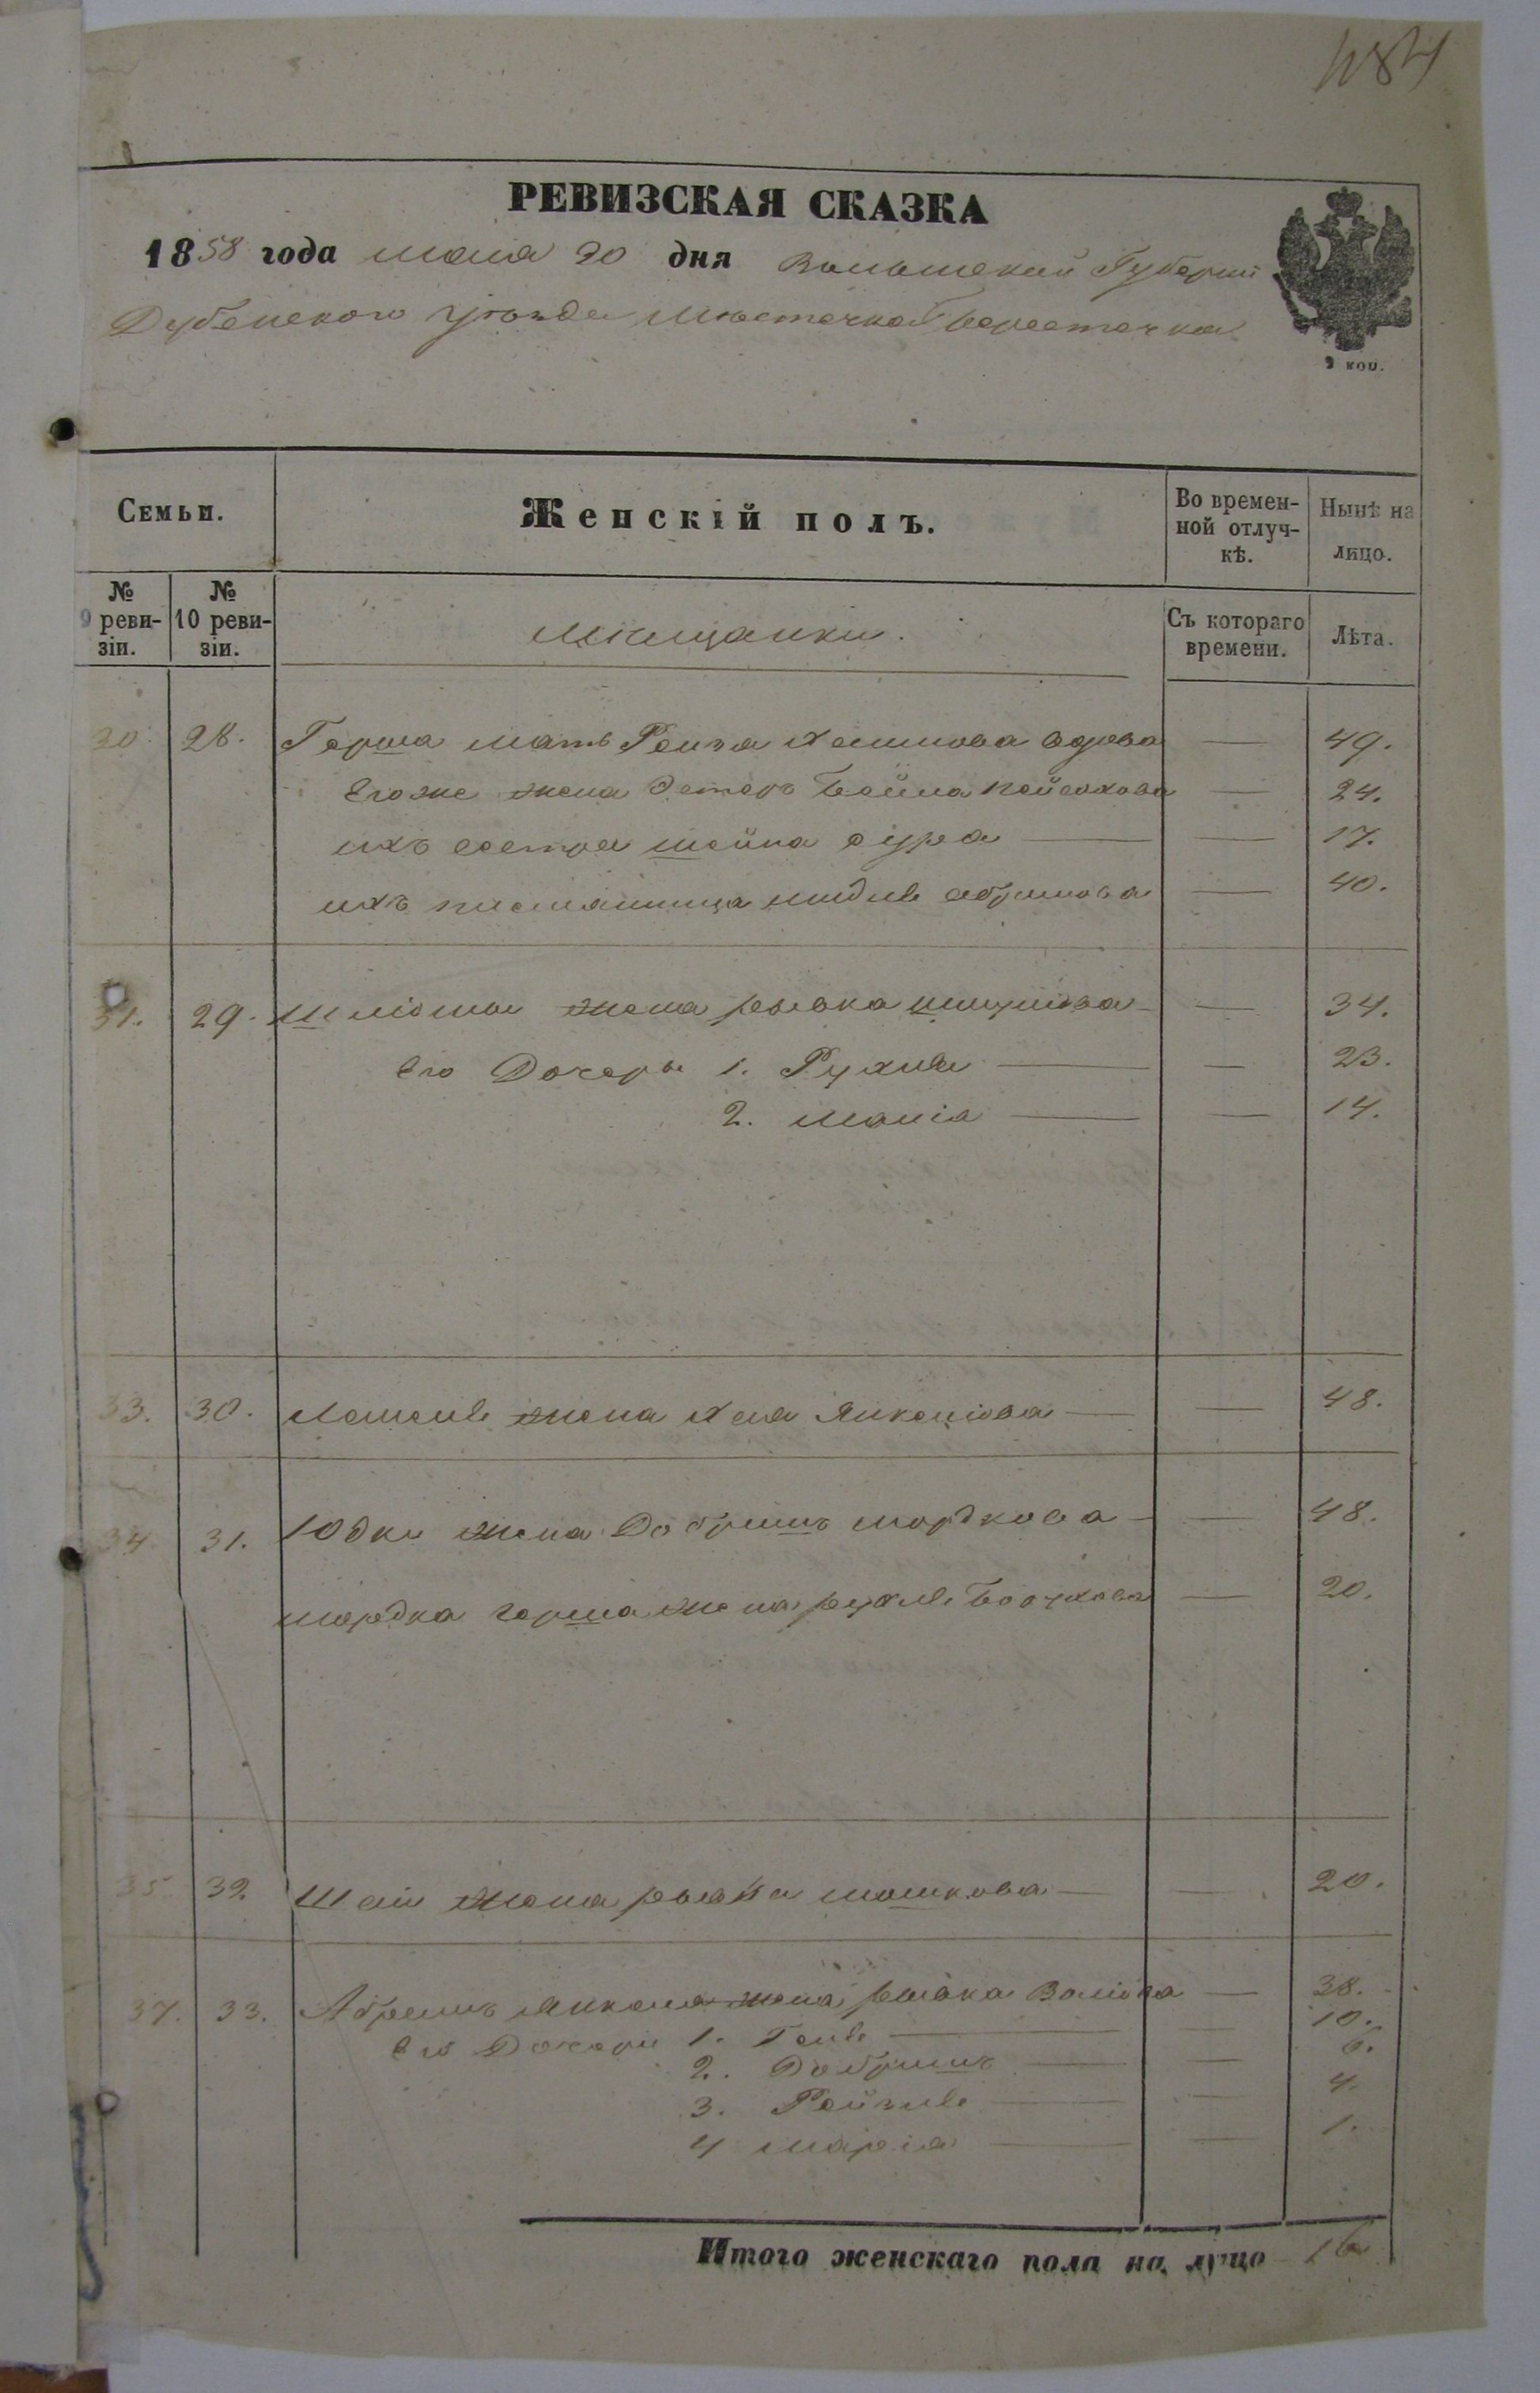 484
РЕВИЗСКАЯ СКАЗКА
1858 года мая 20 дня Волынской Губерніи
Дубенского Уѣзда Мѣстечка Берестечка
2 коп.
Семьи.
Женскій полъ.
Во времен-
ной отлуч-
кѣ.
Нынѣ на
лицо.
№
9 реви-
зіи.
№
10 реви-
зіи.
Мѣщанки.
Съ котораго
времени.
Лѣта.
30. 28. Герша мать Рейза Хаимова вдова — 49.
Его же жена Эстеръ Бейла — 24.
ихъ сестра Шейна Сура — 17.
ихъ племянница Абрамова — 40.
31. 29. жена Рывка — 34.
Его Дочери 1. Рухля — 23.
2. Манія — 14.
33. 30. жена Хая Янкелiова — 48.
34. 31. Юдки жена Добришъ Мордкова — 48.
Мордка Герша жена Рухля Борухова — 20.
35. 32. Шаи жена Рывка Мошкова — 20.
37. 33. Абрамъ Янкеля жена Рывка — 38.
Его Дочери 1. Генѣ — 10.
2. Добришъ — 6.
3. Рейзлѣ — 4.
4 Маріа — 1.
Итого женскаго пола на лицо 16